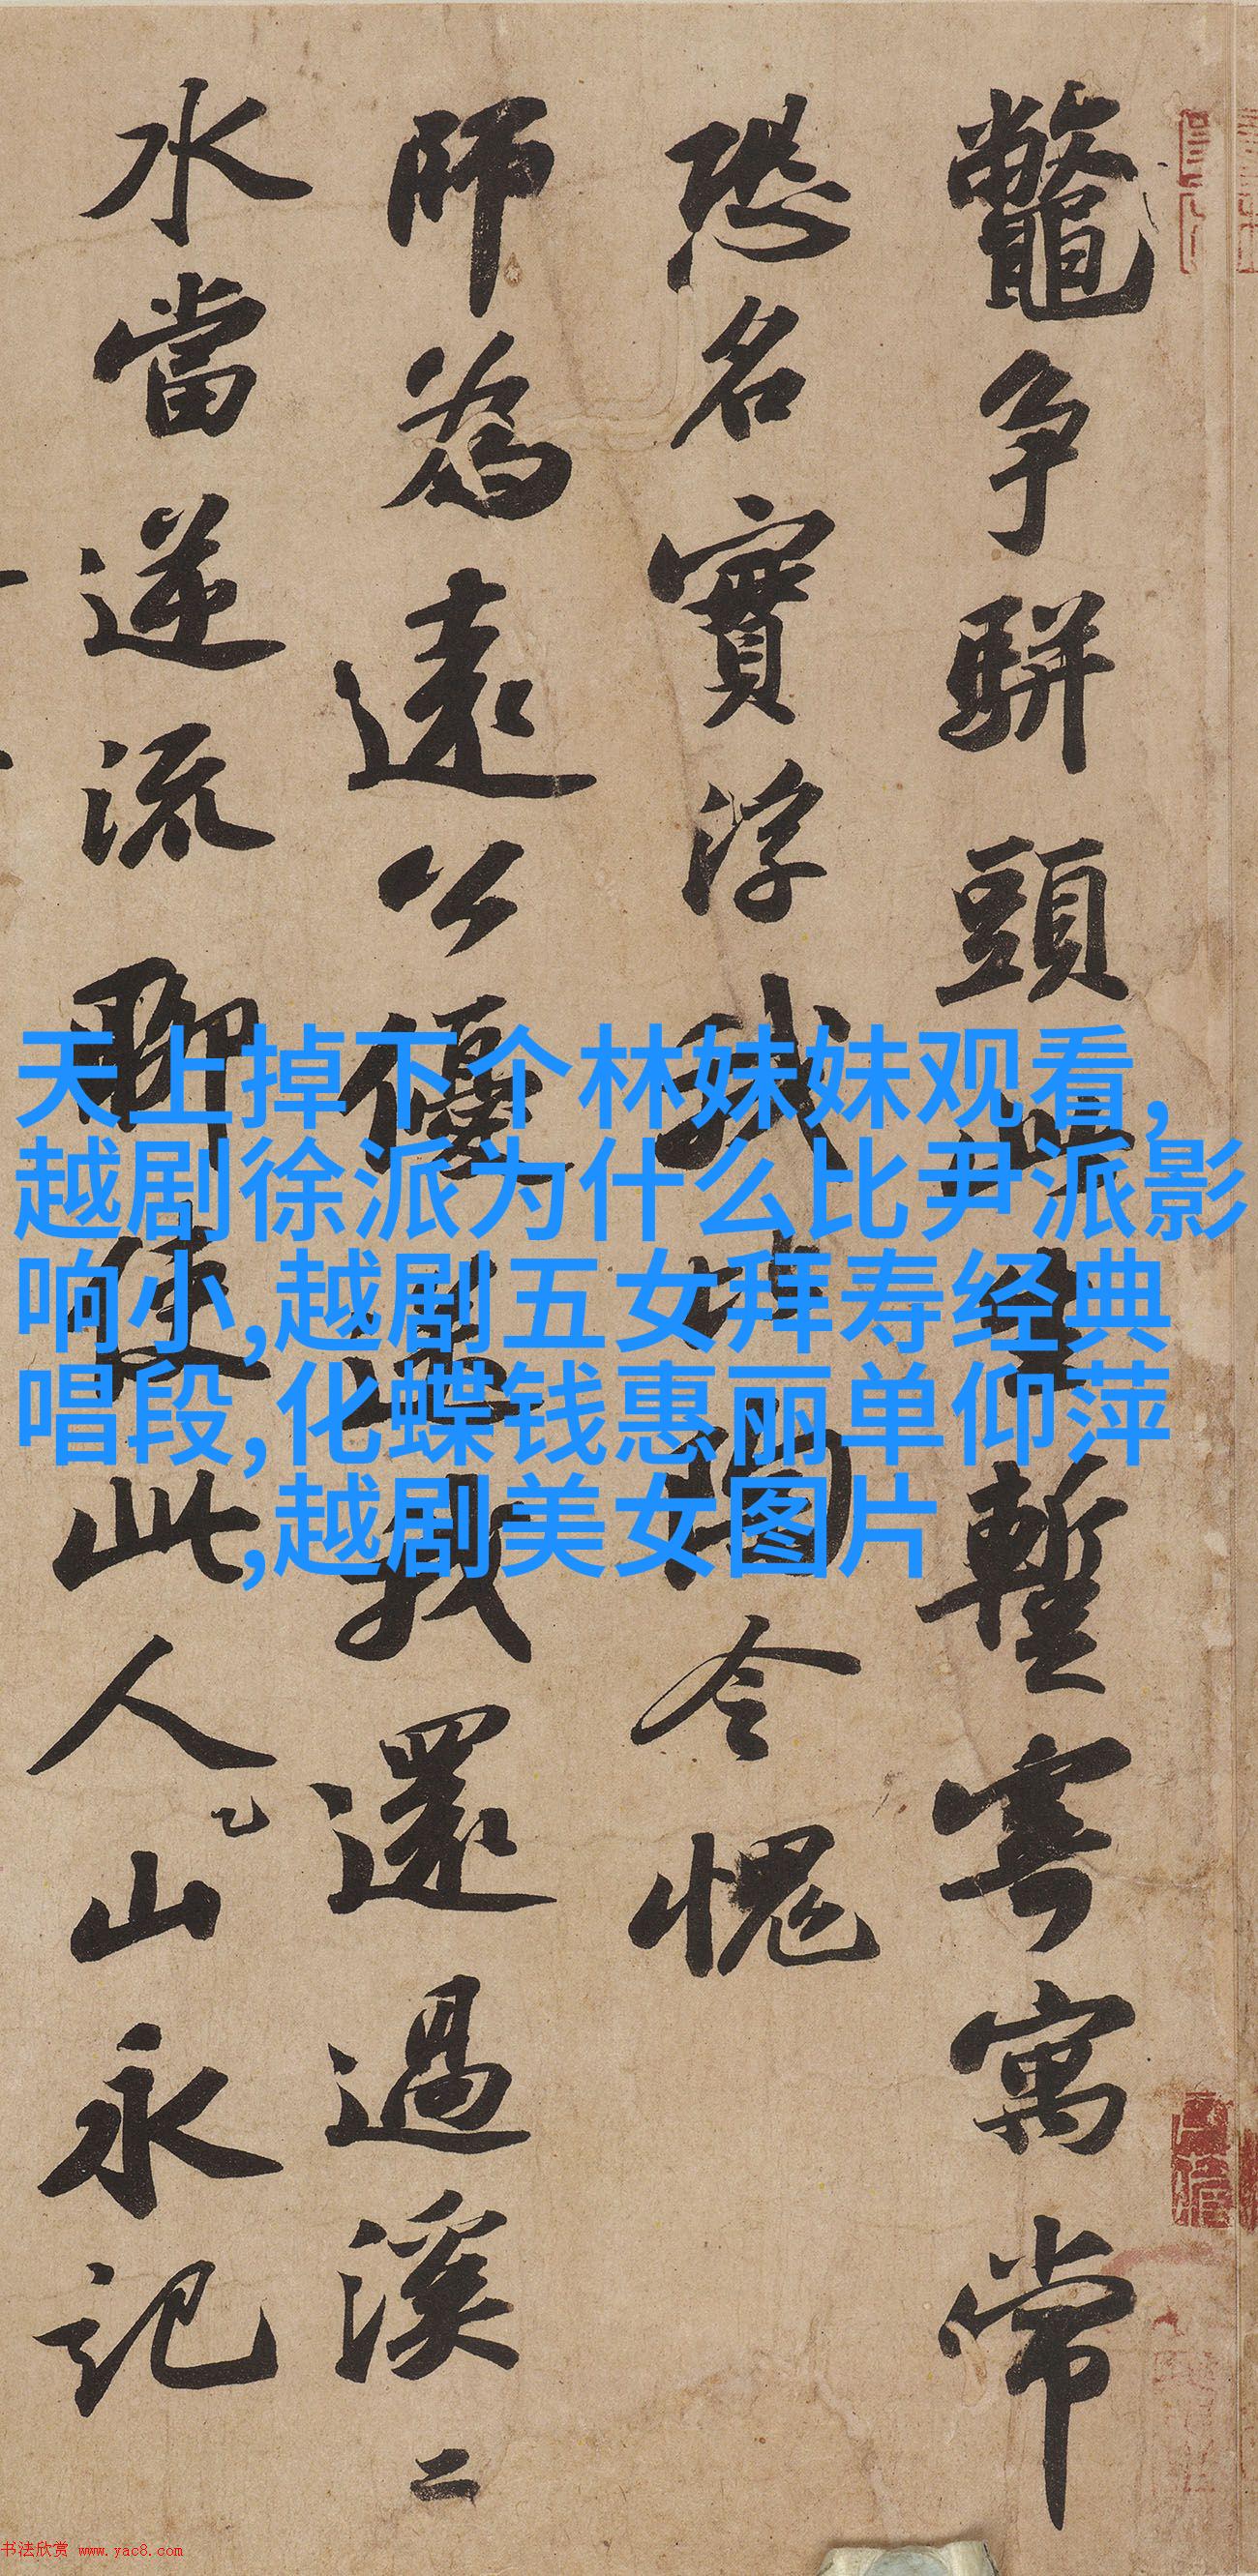 鼈争駢頭此生暫寄寓常
恐名實浮我比陶令愧
師為遠公優送我還過溪二
水當逆流聊使此人山永記
天上掉下个林妹妹观看,
越剧徐派为什么比尹派影
响小,越剧五女拜寿经典
唱段,化蝶钱惠丽单仰萍
,越剧美女图片
书法欣赏 www.yac8.com